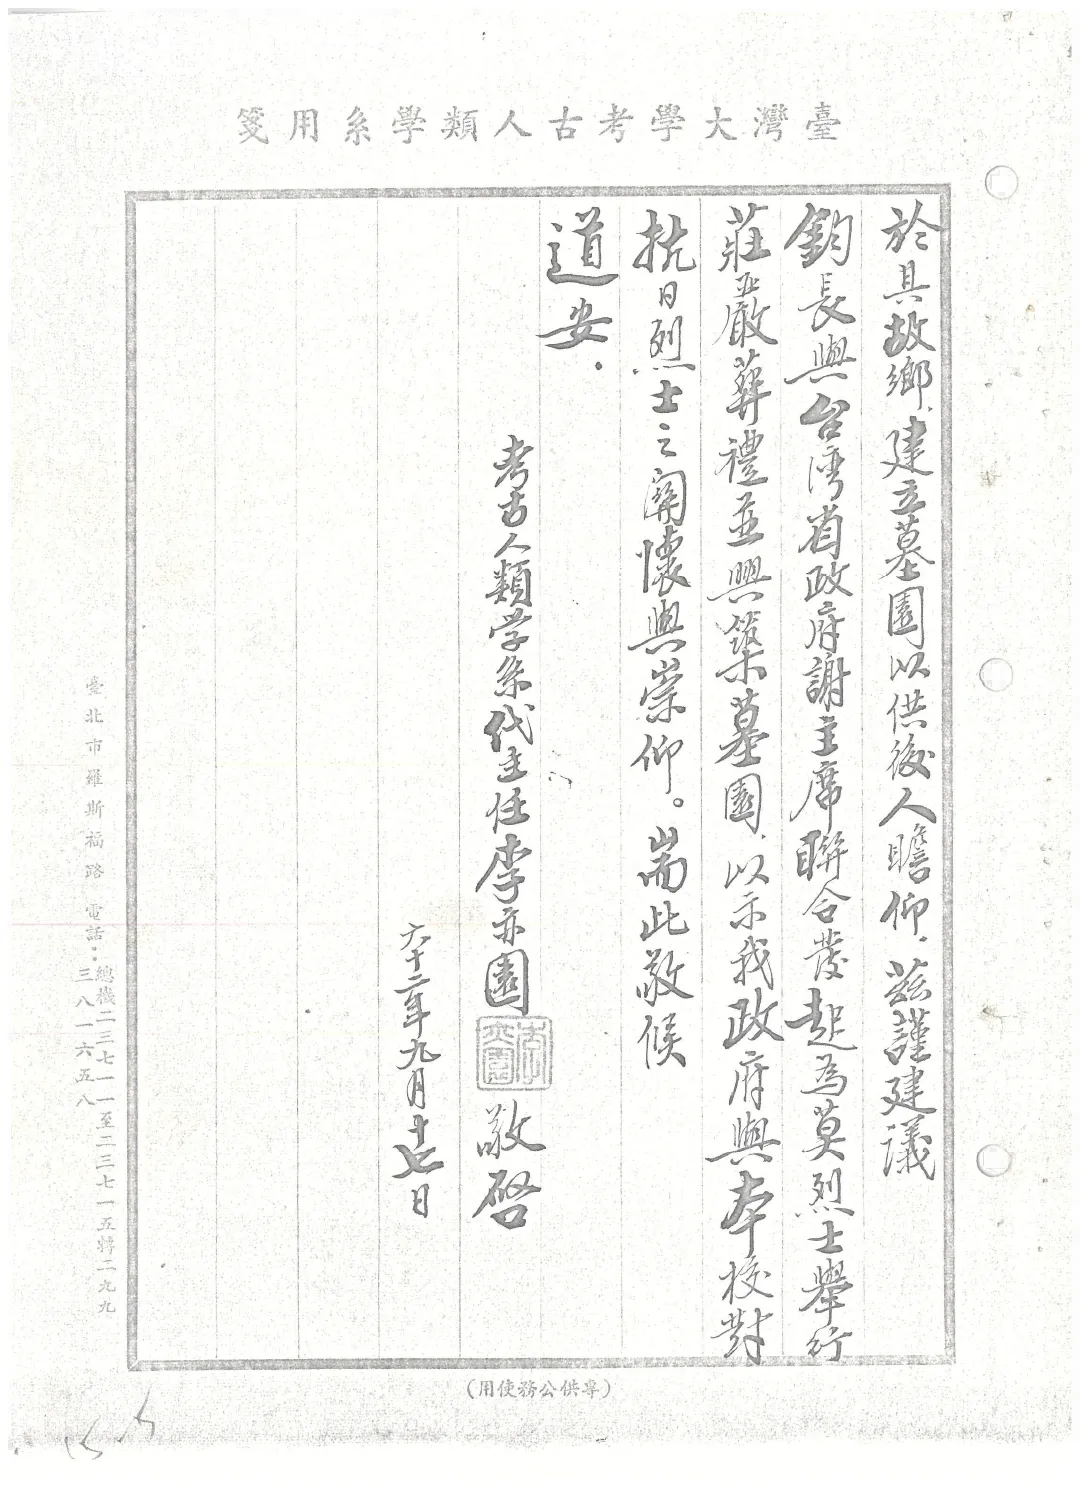 臺灣大學考古人類學系用箋
於其故鄉，建立墓園以供後人瞻仰。茲謹建議
鈞長與台灣省政府謝主席聯合發起為莫烈士舉行
莊嚴葬禮並興築墓園，以示我政府與本校對
抗日烈士之關懷與崇仰。耑此敬候
道安。
考古人類学系代主任李亦園 敬啓
李亦園
六十二年九月十七日
臺北市羅斯福路 電話：總機二三七一一至二三七一五轉二九九
三八一六五八
（專供公務使用）